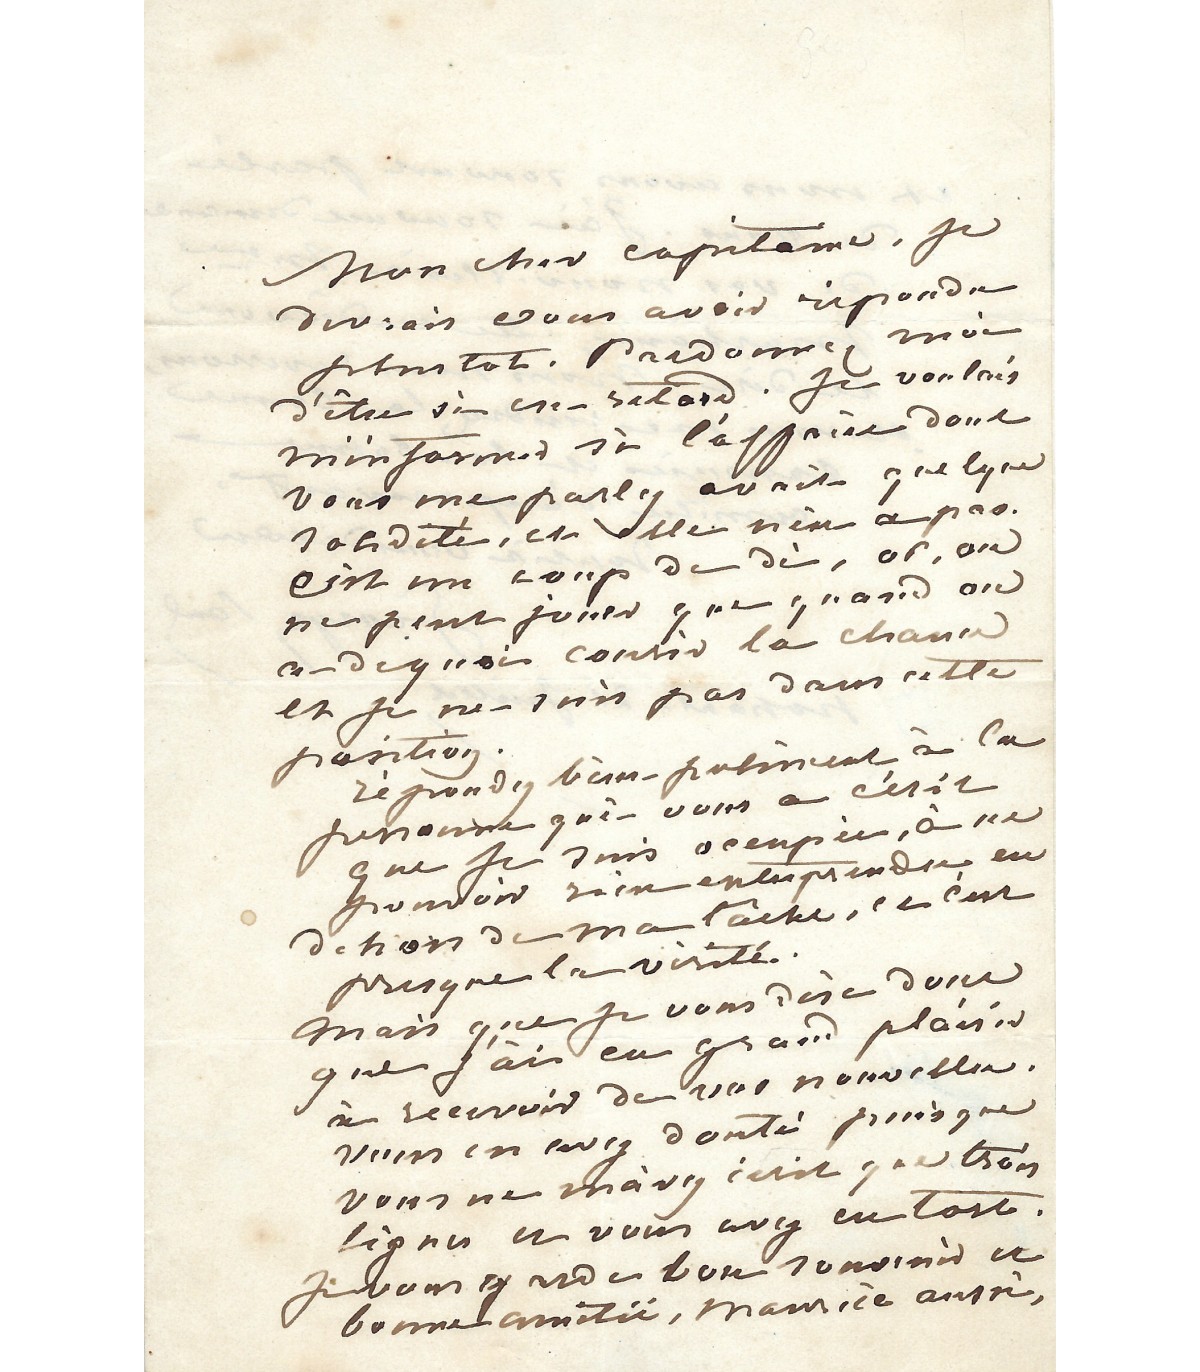 Mon cher capitaine, je
devrais vous avoir répondu
plustot. Pardonnez moi
d'être si en retard. Je voulais
m'informer si l'affaire dont
vous me parlez avait quelque
solidité, et elle n'en a pas.
C'est un coup de dé, or, on
ne peut jouer que quand on
a de quoi courir la chance
et je ne suis pas dans cette
position.
répondez bien poliment à la
personne qui vous a écrit
que je suis occupée, à ne
pouvoir rien entreprendre en
dehors de ma tâche, et c'est
presque la vérité.
Mais que je vous dise donc
que j'ai eu grand plaisir
à recevoir de vos nouvelles.
vous en avez douté puisque
vous ne m'avez écrit que trois
lignes et vous avez eu tort.
Je vous garde bon souvenir et
bonne amitié, Maurice aussi,